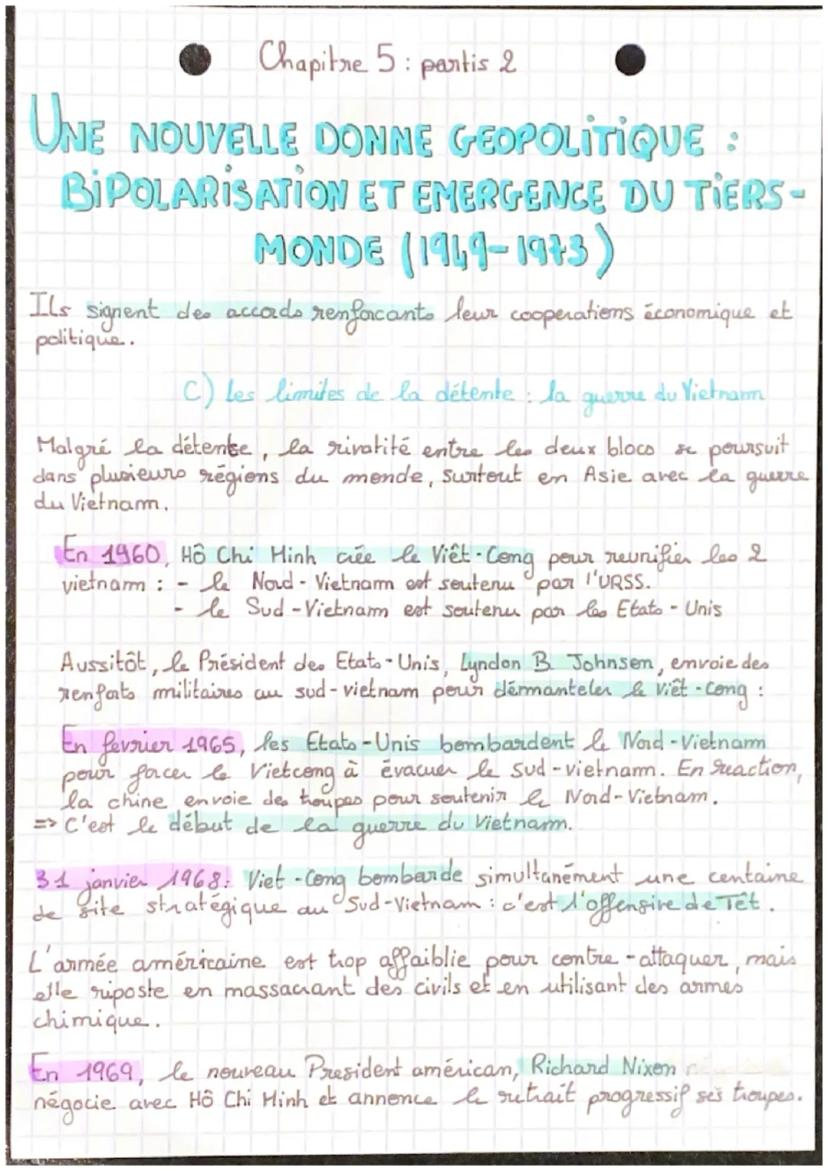 Chapitre 5 : partis 2
UNE NOUVELLE DONNE GEOPOLITIQUE :
BIPOLARISATION ET EMERGENCE DU TIERS-
MONDE (1949-1973)
Ils signent des accords renforcants leur cooperations économique et
politique.
C) Les limites de la détente : la guerre du Vietnam
Malgré la détente, la rivalité entre les deux blocs se poursuit
dans plusieurs régions du monde, surtout en Asie avec la guerre
du Vietnam.
En 1960, Hô Chi Minh crée le Viêt-Cong pour reunifier les 2
vietnam : - le Nord-Vietnam est soutenu par l'URSS.
- le Sud-Vietnam est soutenu par les Etats-Unis
Aussitôt, le Président des Etats-Unis, Lyndon B. Johnson, envoie des
renforts militaires au sud-vietnam pour démanteler le Viêt-Cong :
En fevrier 1965, les Etats-Unis bombardent le Nord-Vietnam
pour forcer le Vietcong à évacuer le Sud-vietnam. En reaction,
la chine envoie des troupes pour soutenir le Nord-Vietnam.
=> C'est le début de la guerre du Vietnam.
31 janvier 1968: Viet-Cong bombarde simultanément une centaine
de site stratégique au Sud-Vietnam : c'est l'offensive de Têt.
L'armée américaine est trop affaiblie pour contre-attaquer, mais
elle riposte en massacrant des civils et en utilisant des armes
chimique.
En 1969, le nouveau President américan, Richard Nixon
négocie avec Hô Chi Minh et annonce le retrait progressif ses troupes.